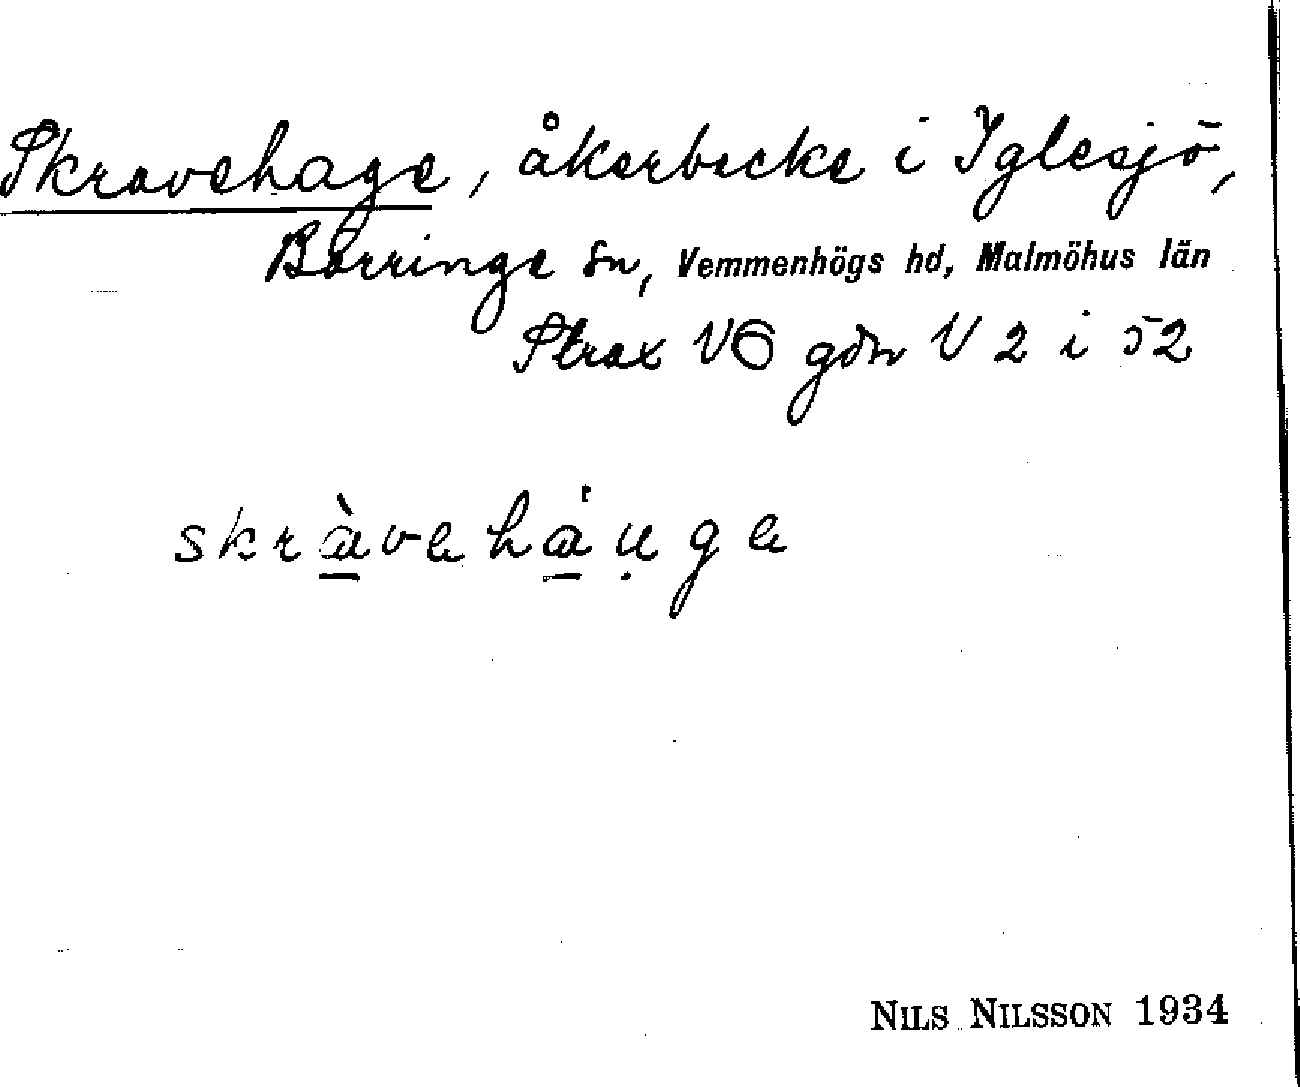 Skravehage, åkerbacke i Iglesjö,
Börringe sn, Vemmenhögs hd, Malmöhus län
Strax VÖ gdn V 2 i 52
skràvehåu̥ga
NILS NILSSON 1934